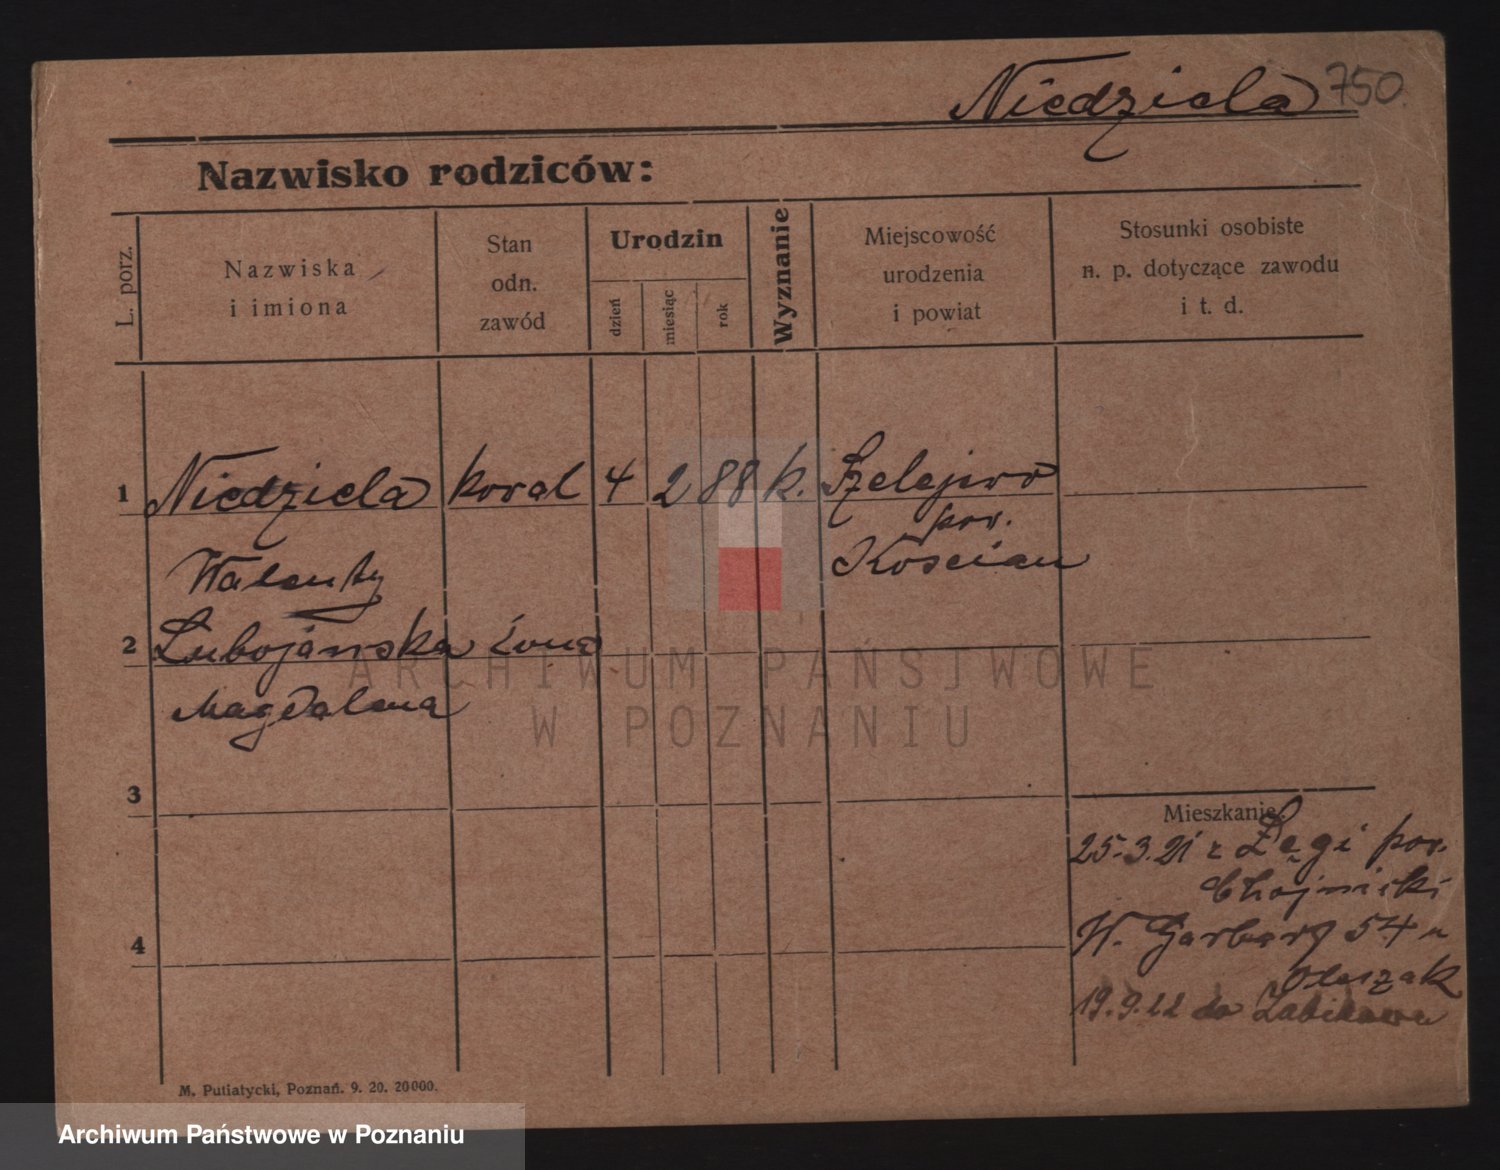 Niedziela 750.
Nazwisko rodziców:
L. porz.
Nazwiska
i imiona
Stan
odn.
zawód
Urodzin
dzień
miesiąc
rok
Wyznanie
Miejscowość
urodzenia
i powiat
Stosunki osobiste
n. p. dotyczące zawodu
i t. d.
1 Niedziela kowal 4 2 88 k. Szelejewo
pow.
Walenty Kościan
2 Lubojańska żona
Magdalena
3
Mieszkanie.
25.3.21 z Łęgi pow.
Chojnicki
4
W. Garbary 54 u
Oleszak
19.9.22 do Żabikowa
M. Putiatycki, Poznań. 9. 20. 20000.
ARCHIWUM PAŃSTWOWE
W POZNANIU
Archiwum Państwowe w Poznaniu